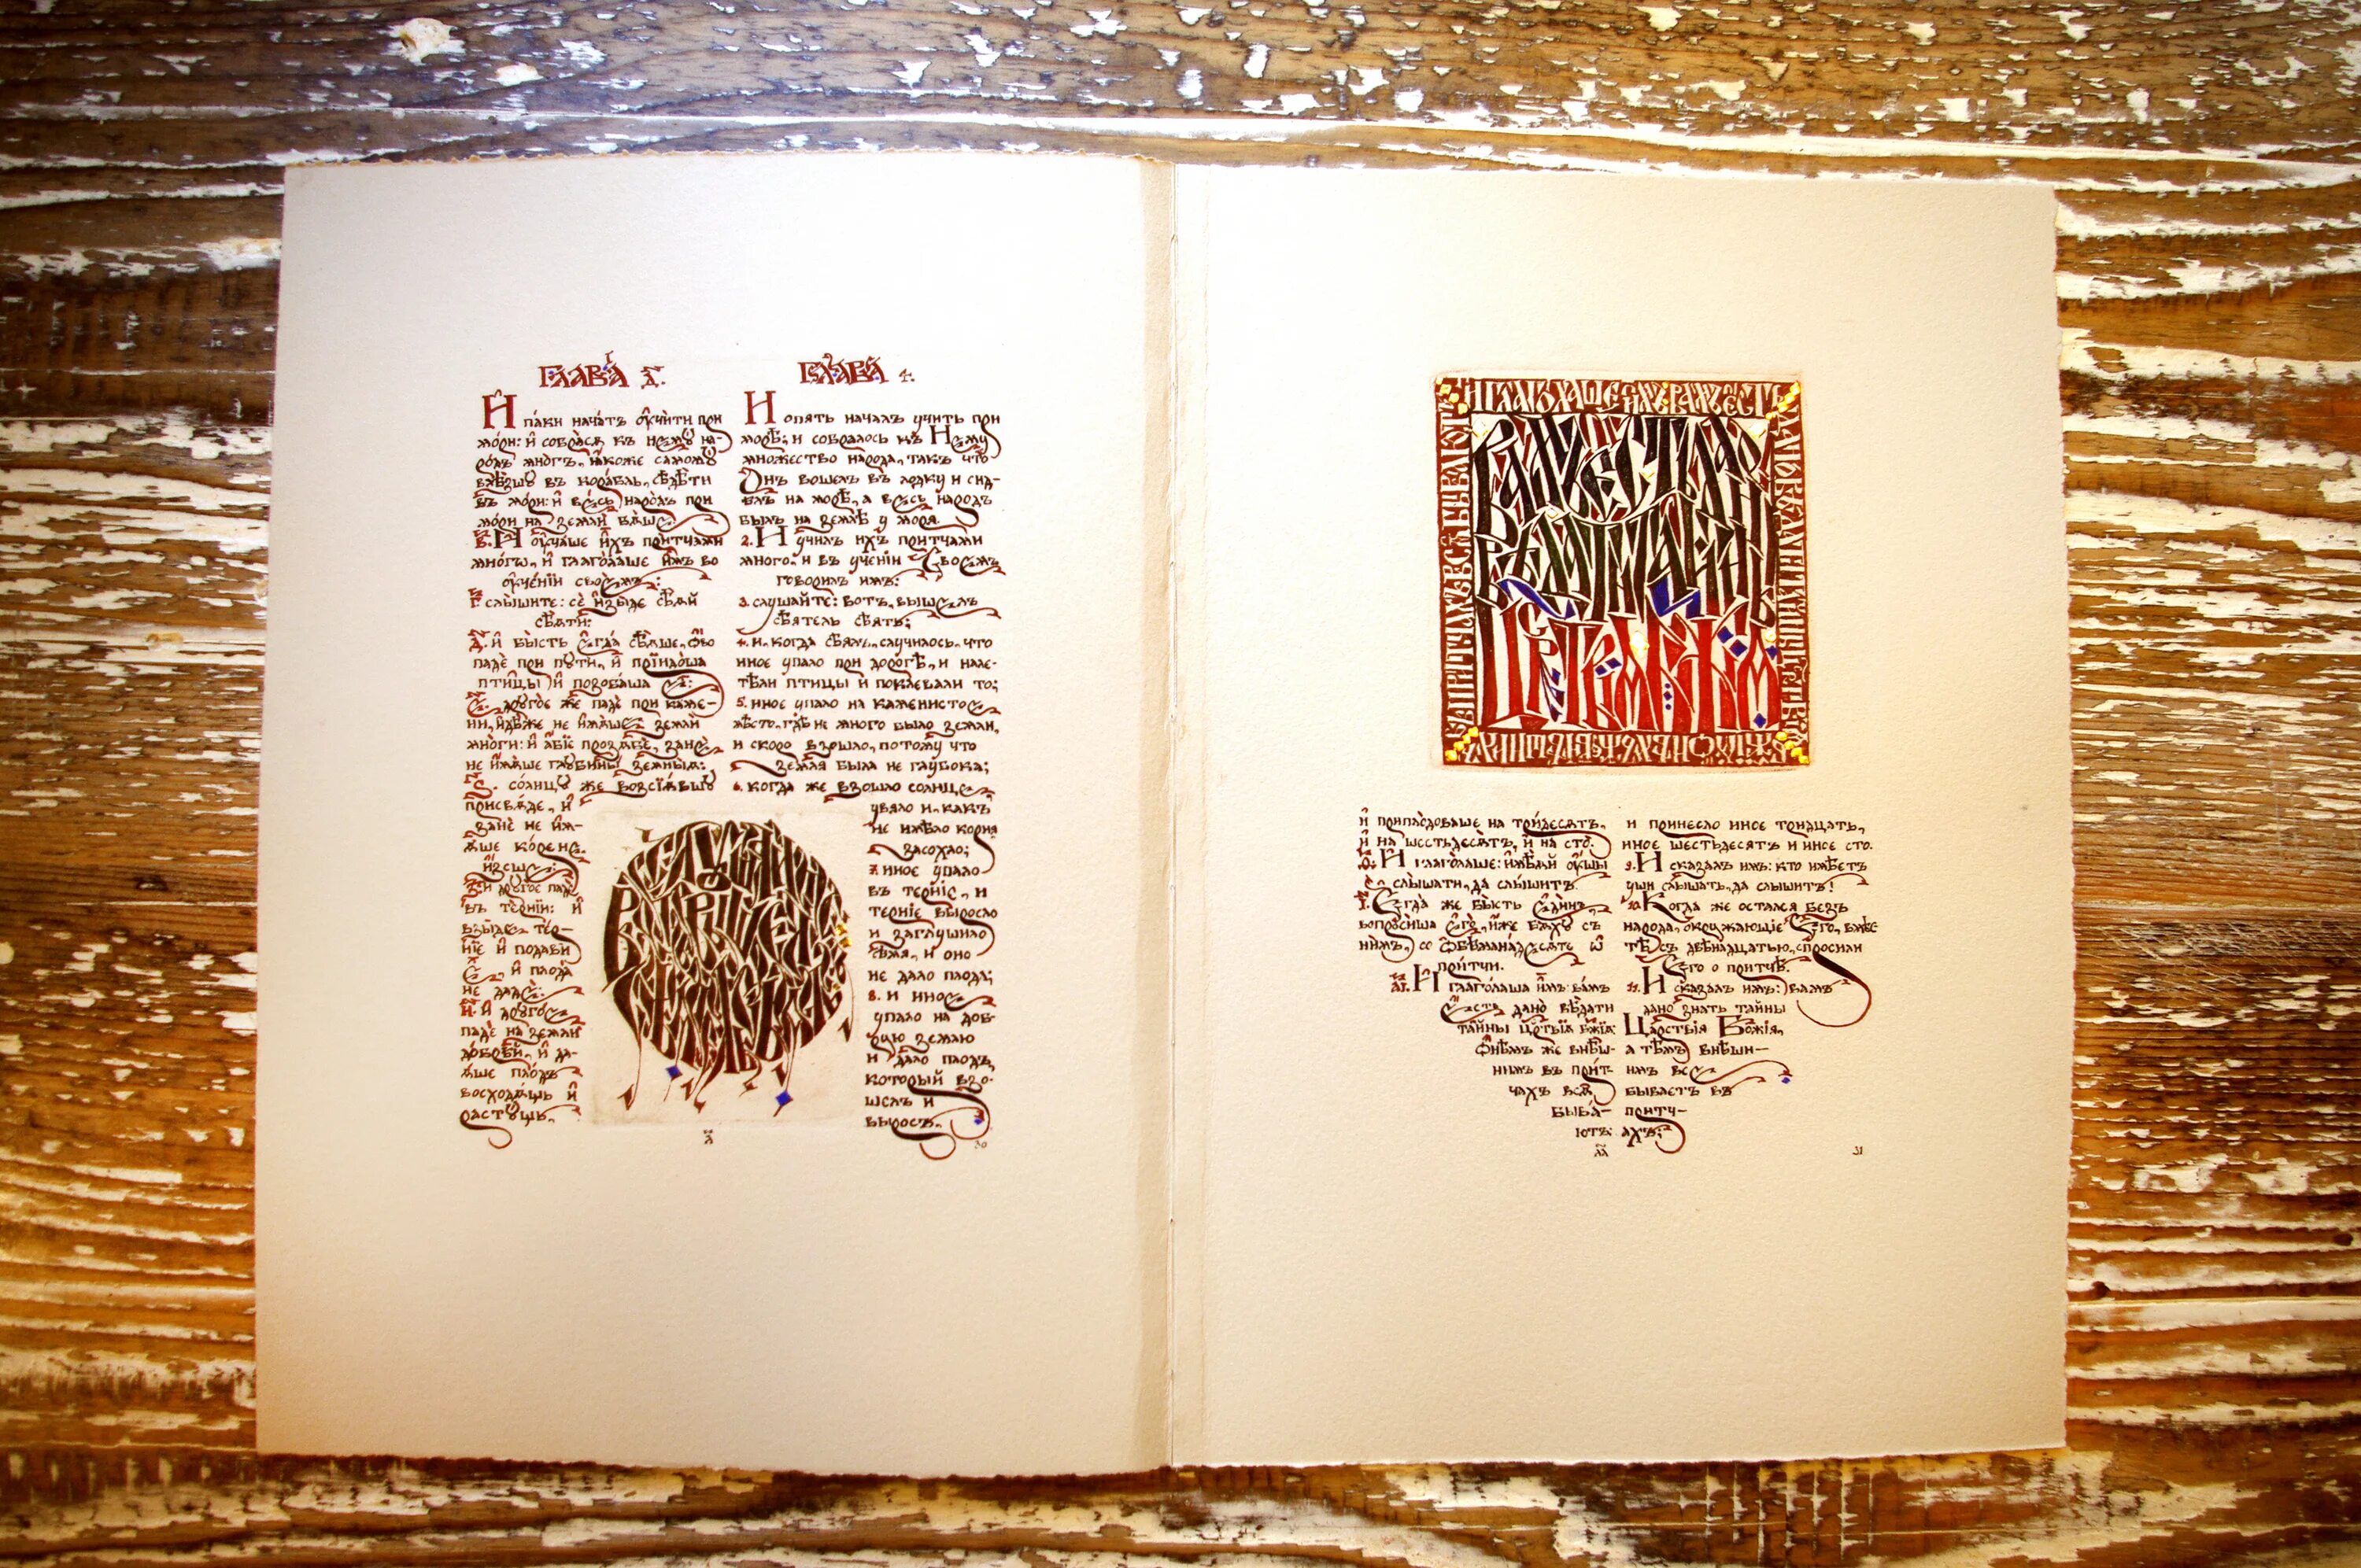 ГЛАВА̀ Д҃.
И҆ па́ки нача́тъ ᲂу҆чи́ти при
мо́ри: и҆ собра̀сѧ къ немꙋ̀ на-
ро́дъ мно́гъ, ꙗ҆́коже самомꙋ̀
влѣ́зшꙋ въ кора́бль, сѣдѣ́ти
въ мо́ри: и҆ ве́сь наро́дъ при
мо́ри на землѝ бѧ́ше
в҃. И҆ ᲂу҆ча́ше и҆̀хъ при́тчами
мно́гѡ, и҆ глаго́лаше и҆̀мъ во
ᲂу҆че́нїи свое́мъ:
г҃ слы́шите: сѐ и҆зы́де сѣ́ѧй
сѣ́ѧти:
д҃. и҆ бы́сть є҆гда̀ сѣ́ѧше, ѻ҆́во
падѐ при пꙋтѝ, и҆ прїидо́ша
пти́цы и҆ позоба́ша є҆̀:
є҃. дрꙋго́е же падѐ при ка́ме-
ни, и҆дѣ́же не и҆мѧ́ше землѝ
мно́ги: и҆ а҆́бїе прозѧбѐ, занѐ
не и҆мѧ́ше глꙋбины̀ земны́ѧ:
ѕ҃. со́лнцꙋ же возсїѧ́вшꙋ
присвѧ́де, и҆
занѐ не и҆м-
ѧ́ше ко́рене,
и҆́зсше:
з҃. и҆ дрꙋго́е падѐ
въ те́рнїи: и҆
взы́де те́р-
нїе и҆ подавѝ
є҆̀, и҆ плода̀
не дадѐ:
и҃. И҆ дрꙋго́е
падѐ на землѝ
до́брѣй, и҆ да-
ѧ́ше пло́дъ
восходѧ́щь и҆
расту́щь,
л҃
ГЛАВА 4.
И опять началъ учить при
морѣ; и собралось къ Нему
множество народа, такъ что
Онъ вошелъ въ лодку и сид-
ѣлъ на морѣ, а весь народъ
былъ на землѣ у моря.
2. И училъ ихъ притчами
много, и въ ученіи Своемъ
говорилъ имъ:
3. слушайте: вотъ, вышелъ
сѣятель сѣять;
4. и, когда сѣялъ, случилось, что
иное упало при дорогѣ, и нале-
тѣли птицы и поклевали то;
5. иное упало на каменистое
мѣсто, гдѣ не много было земли,
и скоро взошло, потому что
земля была не глубока;
6. когда же взошло солнце,
увяло и, какъ
не имѣло корня
засохло;
7. иное упало
въ терніе, и
терніе выросло
и заглушило
сѣмя, и оно
не дало плода;
8. и иное
упало на доб-
рую землю
и дало плодъ,
который взо-
шелъ и
выросъ,
30
и҆ приплодова́ше на три́десѧть,
и҆ на шестьдесѧ́тъ, и҆ на сто̀.
ѳ҃. И҆ глаго́лаше: и҆мѣ́ѧй ᲂу҆́шы
слы́шати, да слы́шитъ.
і҃. Є҆гда́ же бы́сть є҆ди́нъ,
вопроси́ша є҆го̀, и҆̀же бѧ́хꙋ съ
ни́мъ, со ѻ҆бѣмана́десѧте ѡ҆
при́тчи.
а҃і. И҆ глаго́лаше и҆̀мъ: ва́мъ
є҆́сть дано̀ вѣ́дати
та̑йны црⷭ҇твїѧ бж҃їѧ:
ѻ҆нѣ̑мъ же внѣ̑ш-
нимъ въ при́т-
чахъ всѧ̑
быва́-
ютъ:
л҃а
и принесло иное тридцать,
иное шестьдесятъ и иное сто.
9. И сказалъ имъ: кто имѣетъ
уши слышать, да слышитъ!
10. Когда же остался безъ
народа, окружающіе Его, вмѣс-
тѣ съ двѣнадцатью, спросили
Его о притчѣ.
11. И сказалъ имъ: вамъ
дано знать тайны
Царствія Божія,
а тѣмъ внѣшн-
имъ все
бываетъ въ
притч-
ахъ;
31